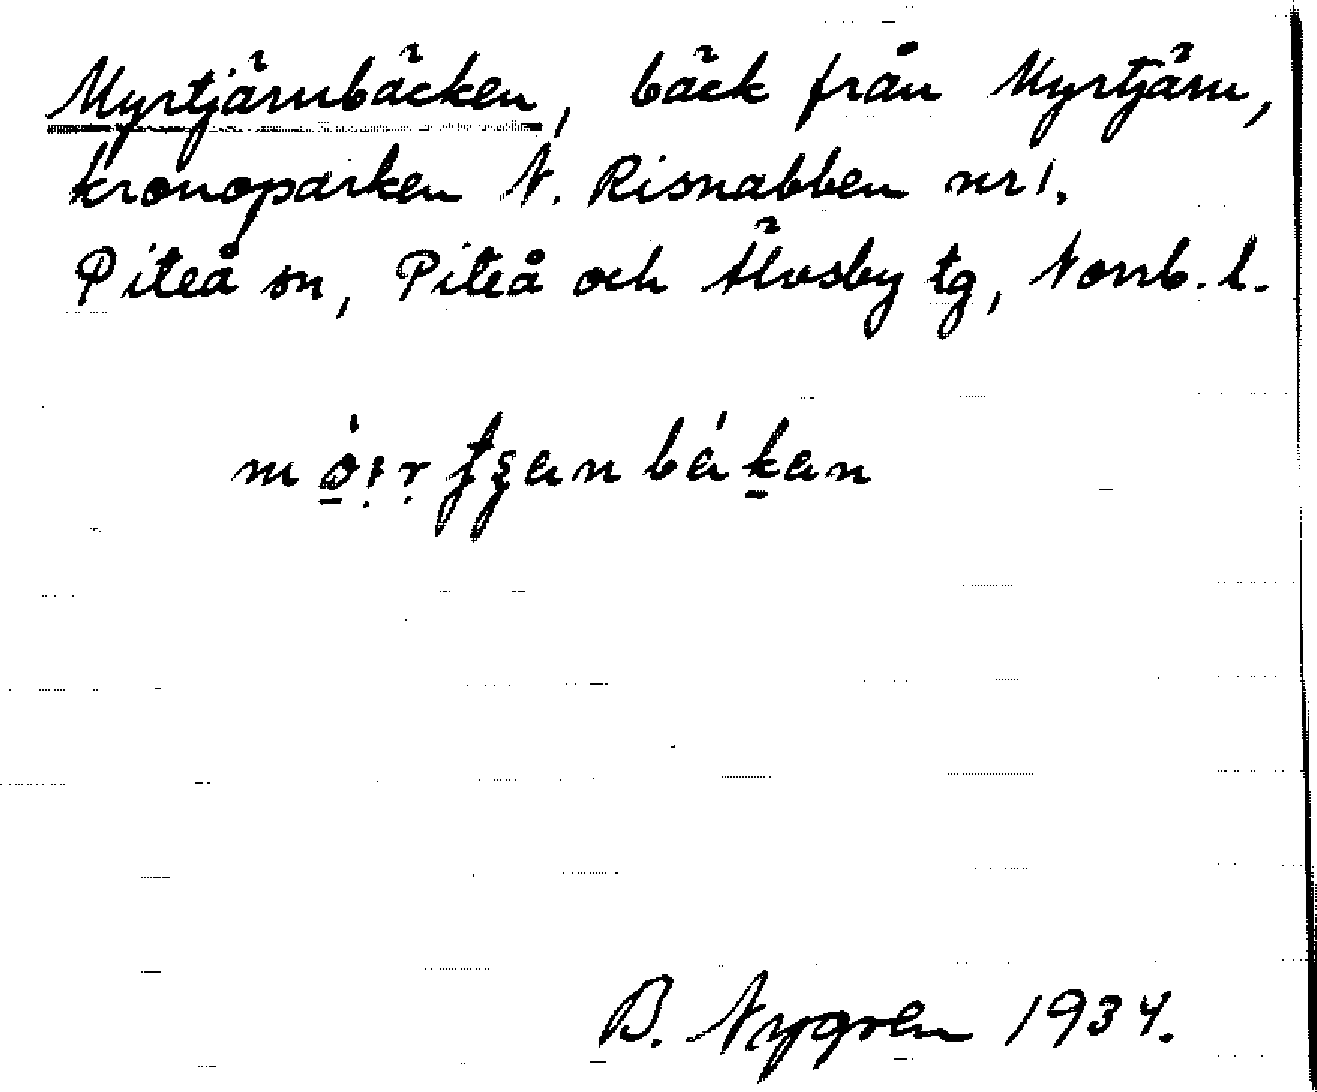 Myrtjärnbäcken, bäck från Myrtjärn,
kronoparken N. Risnabben nr 1.
Piteå sn, Piteå och Älvsby tg, Norrb. l.
B. Nygren 1934.